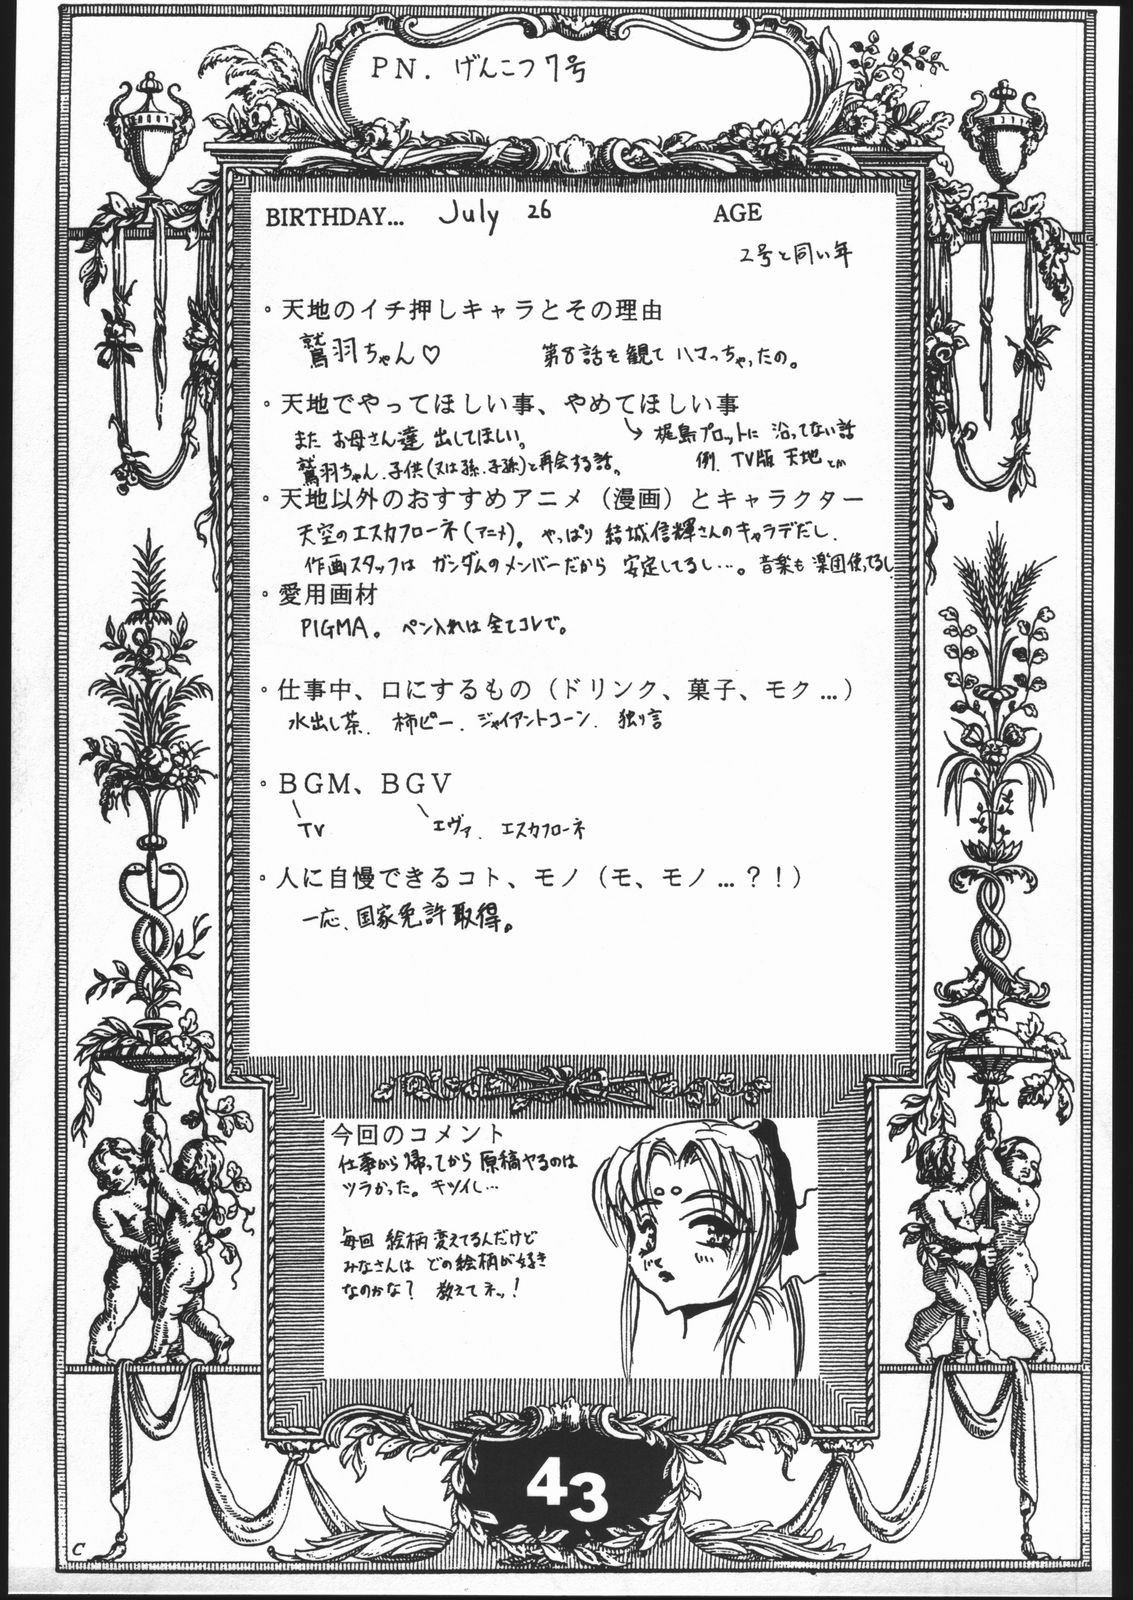 PN. げんこつ7号
BIRTHDAY... July 26 AGE
2号と同い年
・天地のイチ押しキャラとその理由
鷲羽ちゃん♡ 第8話を観て ハマっちゃったの。
・天地でやってほしい事、やめてほしい事
また お母さん達 出してほしい。 → 梶島プロットに 沿ってない話
鷲羽ちゃん、子供(又は孫、子孫)と再会する話。 例、TV版 天地とか
・天地以外のおすすめアニメ(漫画)とキャラクター
天空のエスカフローネ(アニメ)。やっぱり 結城信輝さんのキャラデだし、
作画スタッフは ガンダムのメンバーだから 安定してるし…。音楽も 楽団使ってるし
・愛用画材
PIGMA。 ペン入れは全てコレで。
・仕事中、口にするもの(ドリンク、菓子、モク…)
水出し茶、 柿ピー、ジャイアントコーン、 独り言
・BGM、BGV
TV エヴァ、エスカフローネ
・人に自慢できるコト、モノ(モ、モノ…?!)
一応、国家免許取得。
今回のコメント
仕事から 帰ってから 原稿ヤるのは
ツラかった。キツイし…
毎回 絵柄変えてるんだけど
みなさんは どの絵柄が好き
なのかな? 教えてネッ!
43
C